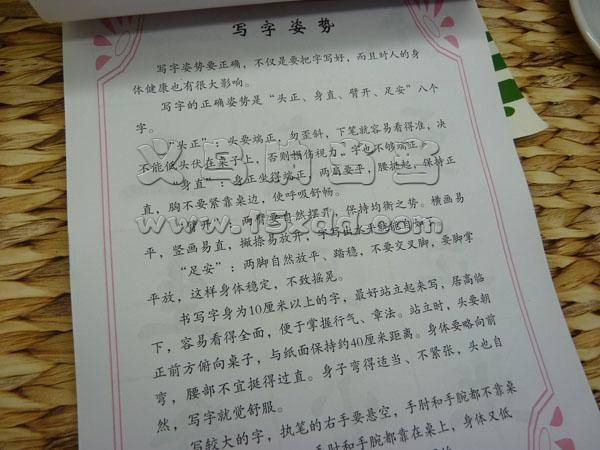 写字姿势
写字姿势要正确，不仅是要把字写好，而且对人的身
体健康也有很大影响。
写字的正确姿势是“头正、身直、臂开、足安”八个
字。
“头正”：头要端正，勿歪斜，下笔就容易看得准，决
不能低头伏在桌子上，否则损伤视力，字也不够端正。
“身直”：身正坐得端正，两肩要平，腰挺起，保持正
直，胸不要紧靠桌边，使呼吸舒畅。
“臂开”：两臂要自然摆开，保持均衡之势。横画易
平，竖画易直，撇捺易放开，字写出
“足安”：两脚自然放平、踏稳，不要交叉脚，要脚掌
平放，这样身体稳定，不致摇晃。
书写字身为10厘米以上的字，最好站立起来写，居高临
下，容易看得全面，便于掌握行气、章法。站立时，头要朝
正前方俯向桌子，与纸面保持约40厘米距离。身体要略向前
弯，腰部不宜挺得过直。身子弯得适当、不紧张，头也自
然，写字就觉舒服。
写较大的字，执笔的右手要悬空，手肘和手腕都不靠桌
手肘和手腕都靠在桌上，身体又低
www.1sxdd.com